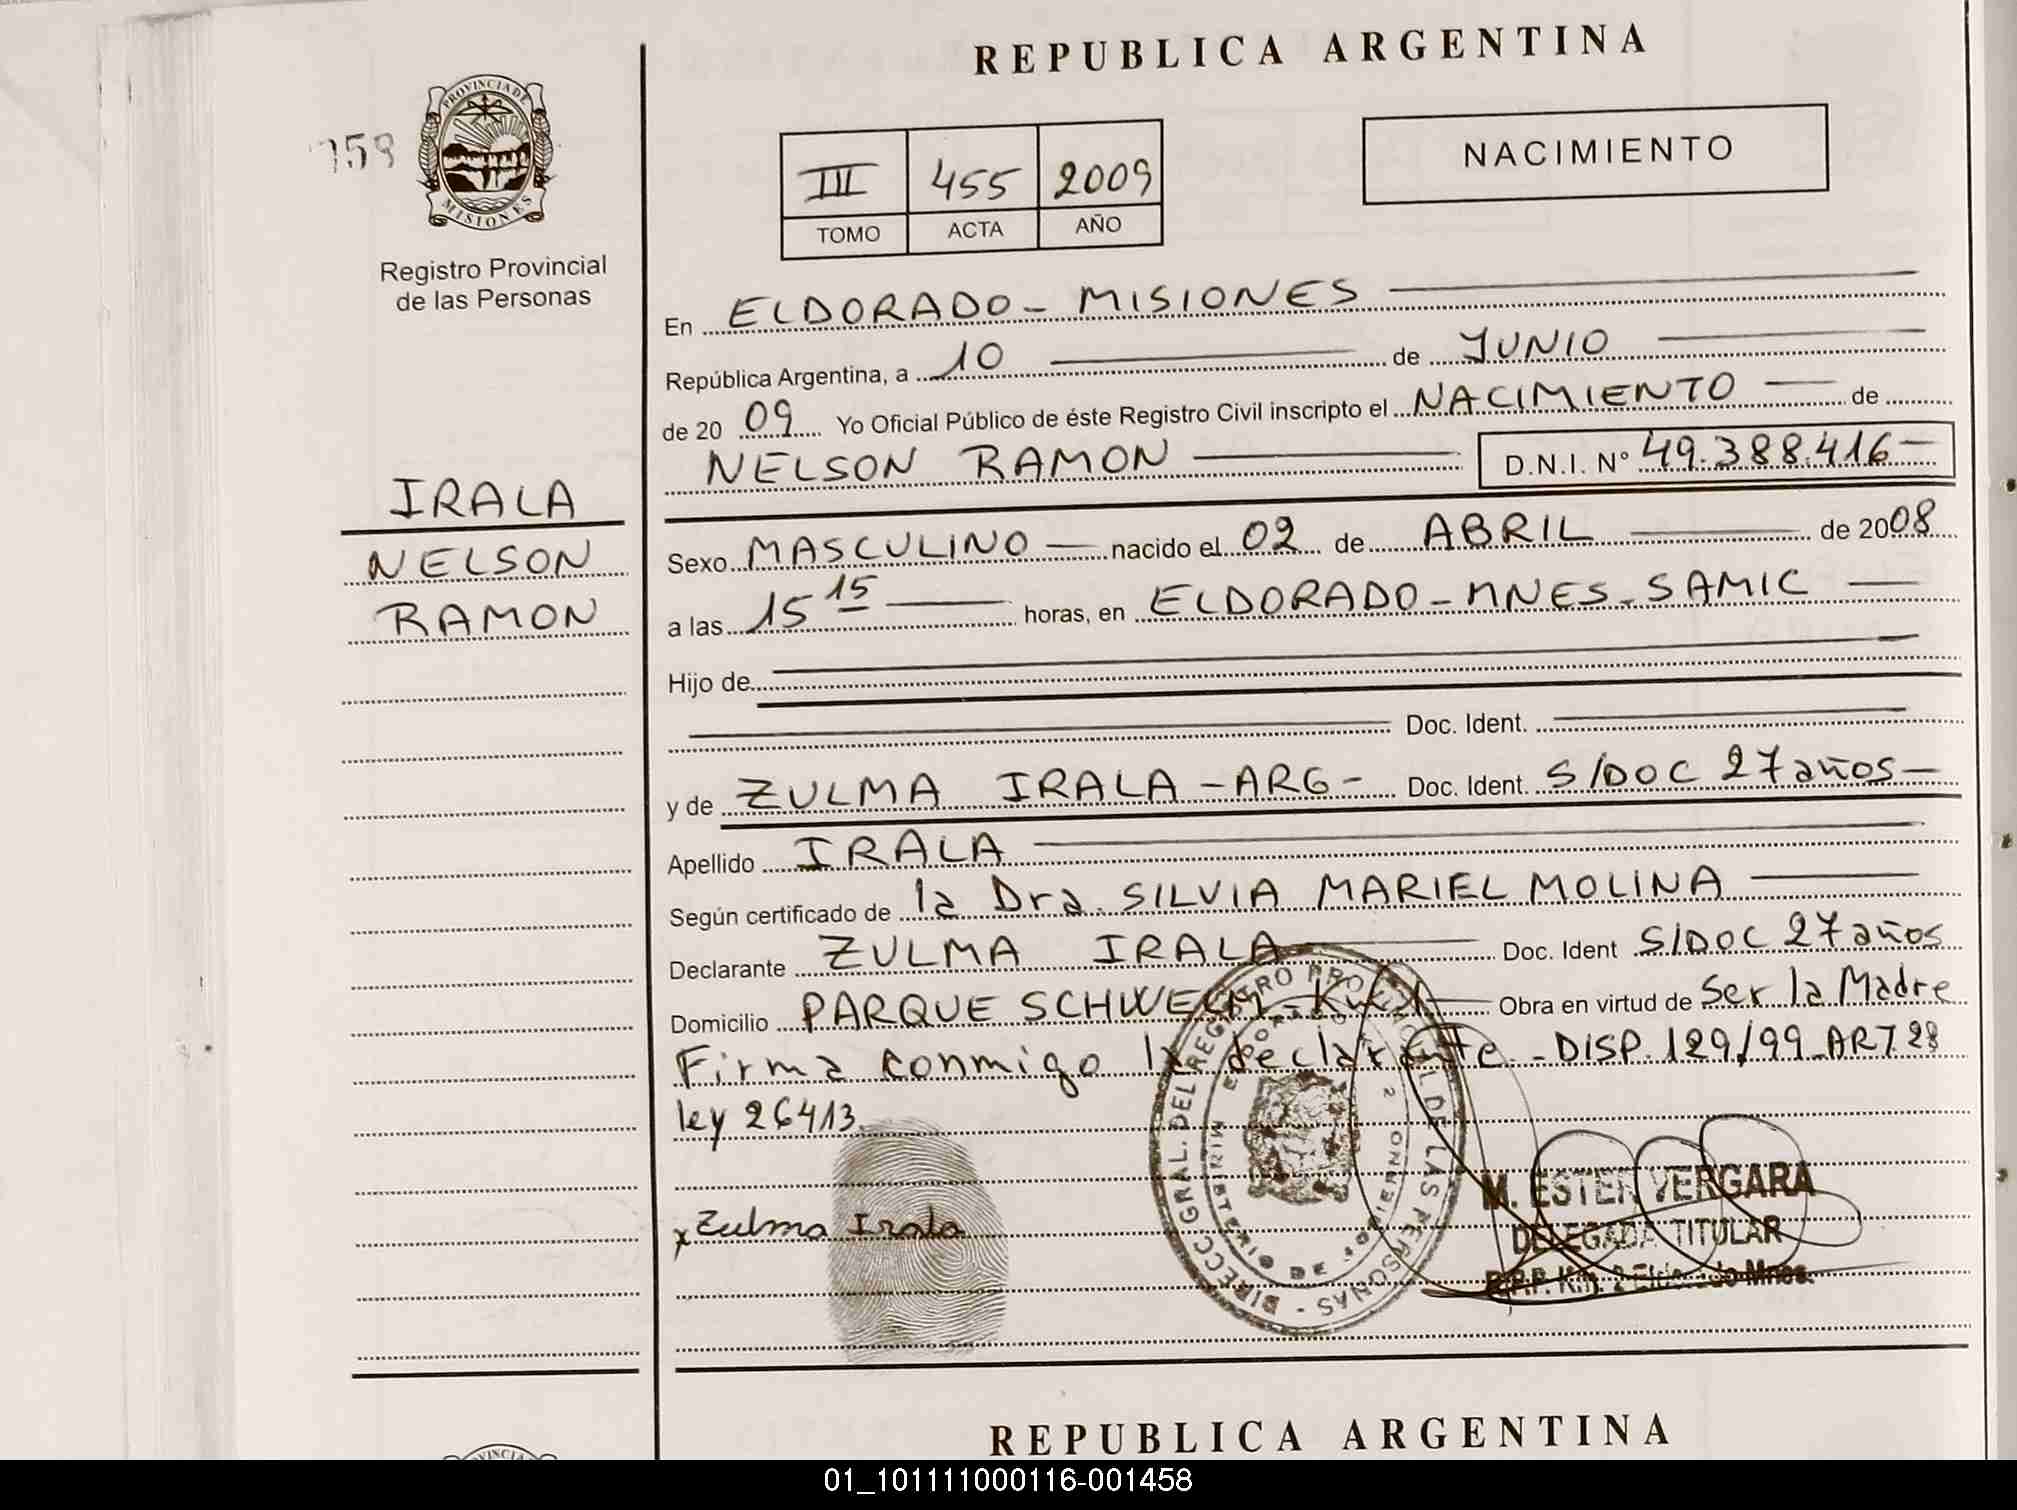 REPUBLICA ARGENTINA
PROVINCIA DE
MISIONES
Registro Provincial
de las Personas
III 455 2009
TOMO ACTA AÑO
NACIMIENTO
En ELDORADO - MISIONES
República Argentina, a 10 de JUNIO
de 20 09 Yo Oficial Público de éste Registro Civil inscripto el NACIMIENTO de
NELSON RAMON D.N.I. Nº 49.388.416
IRALA
NELSON
RAMON
Sexo MASCULINO nacido el 02 de ABRIL de 2008
a las 15 15 horas, en ELDORADO - MNES - SAMIC
Hijo de
Doc. Ident.
y de ZULMA IRALA - ARG - Doc. Ident. S/DOC 27 años
Apellido IRALA
Según certificado de la Dra. SILVIA MARIEL MOLINA
Declarante ZULMA IRALA Doc. Ident S/DOC 27 años
Domicilio PARQUE SCHWELM - Obra en virtud de Ser la Madre
Firma conmigo la declarante - DISP. 129/99 ART. 28
ley 26413.
x Zulma Irala
DIRECC GRAL. DEL REGISTRO PROVINCIAL DE LAS PERSONAS
MINISTERIO DE GOBIERNO
M. ESTER VERGARA
DELEGADA TITULAR
R.P.P. Km. 2 Eldorado Mnes.
REPUBLICA ARGENTINA
01_101111000116-001458